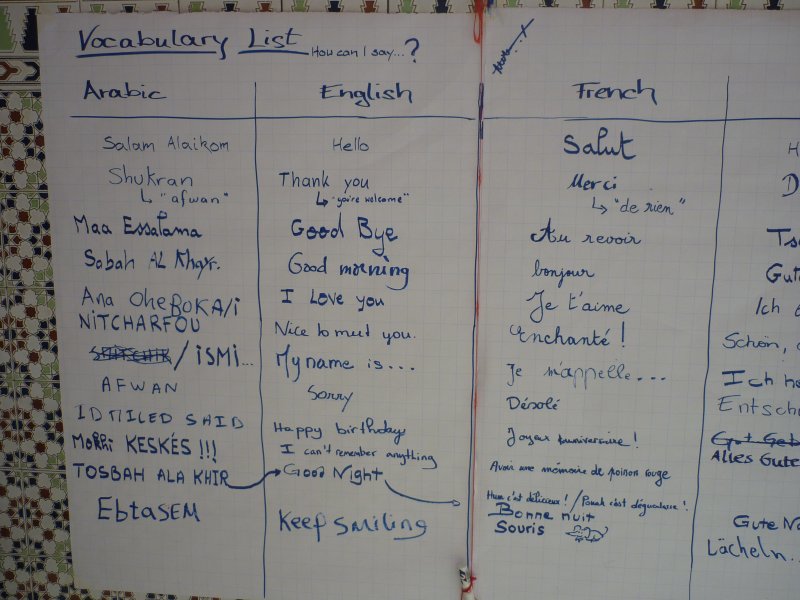 Vocabulary List How can I say...?
Arabic English French
Salam Alaikom Hello Salut H
Shukran Thank you Merci D
↳ "afwan" ↳ "you're welcome" ↳ "de rien"
Maa Essalama Good Bye Au revoir Ts
Sabah AL Khayr. Good morning bonjour Gute
Ana OheBOKA/i I Love you Je t'aime Ich
NITCHARFOU Nice to meet you. Enchanté ! Schön,
/ iSMi... My name is... Je m'appelle... Ich he
AFWAN Sorry Désolé Entsch
ID MILED SAID Happy birthday Joyeux anniversaire !
KESKÉS !!! I can't remember anything Avoir une mémoire de poisson rouge Alles Gute
TOSBAH ALA KHIR Good Night Hum c'est délicieux ! / Pouah c'est dégueulasse !
Bonne nuit Gute N
EbtaSEM Keep smiling Souris Lächeln..